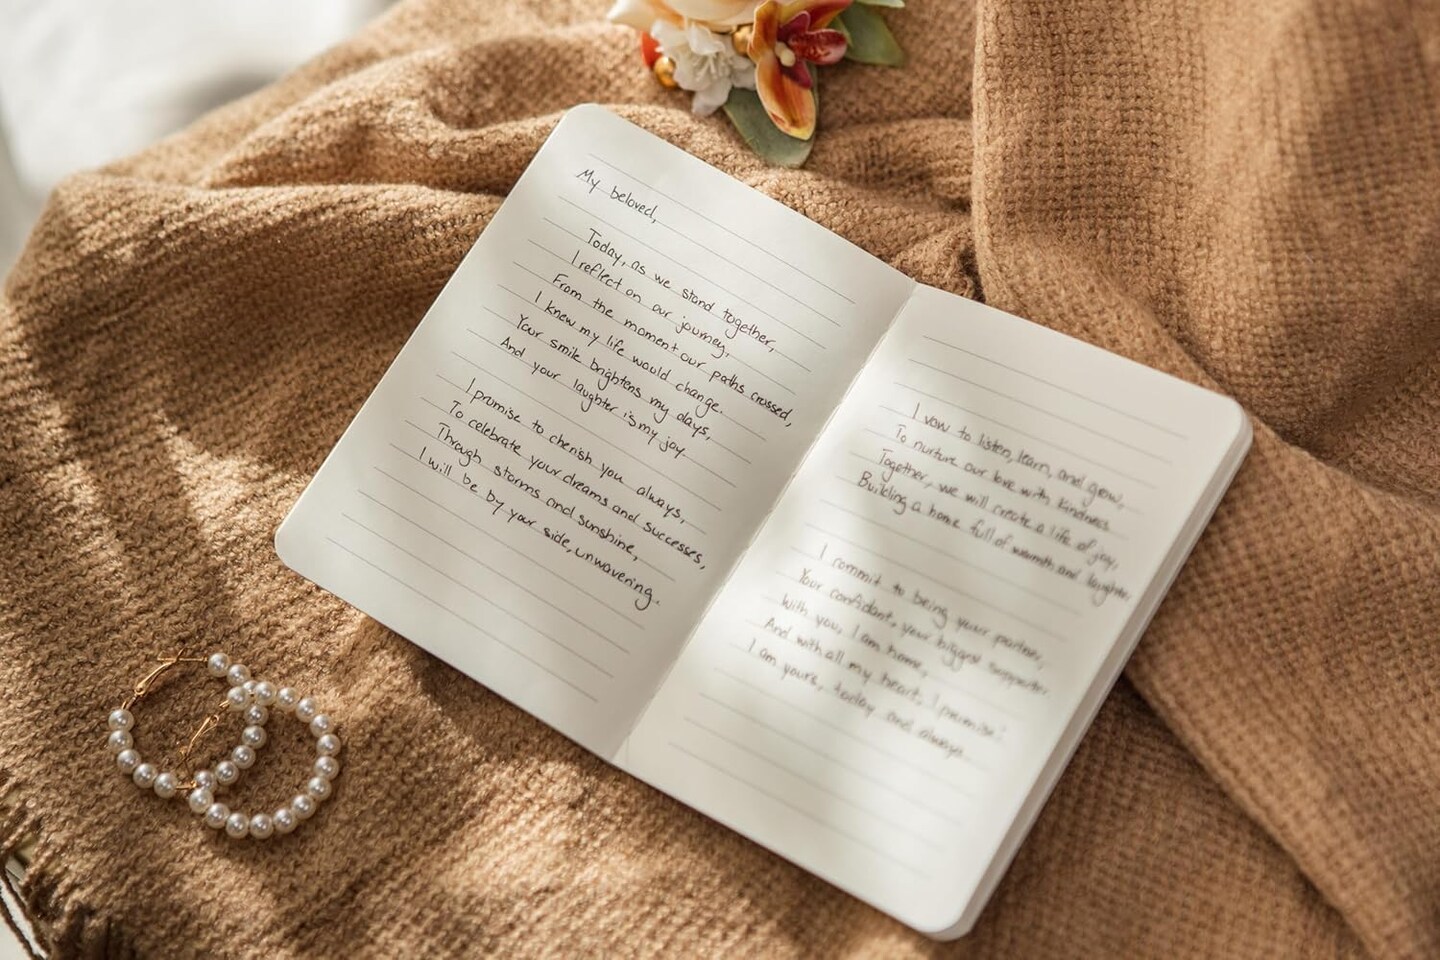 My beloved,
Today, as we stand together,
I reflect on our journey.
From the moment our paths crossed,
I knew my life would change.
Your smile brightens my days,
And your laughter is my joy.
I promise to cherish you always,
To celebrate your dreams and successes,
Through storms and sunshine,
I will be by your side, unwavering.
I vow to listen, learn, and grow,
To nurture our love with kindness
Together, we will create a life of joy,
Building a home full of warmth and laughter.
I commit to being your partner,
Your confidant, your biggest supporter
With you, I am home,
And with all my heart, I promise:
I am yours, today and always.